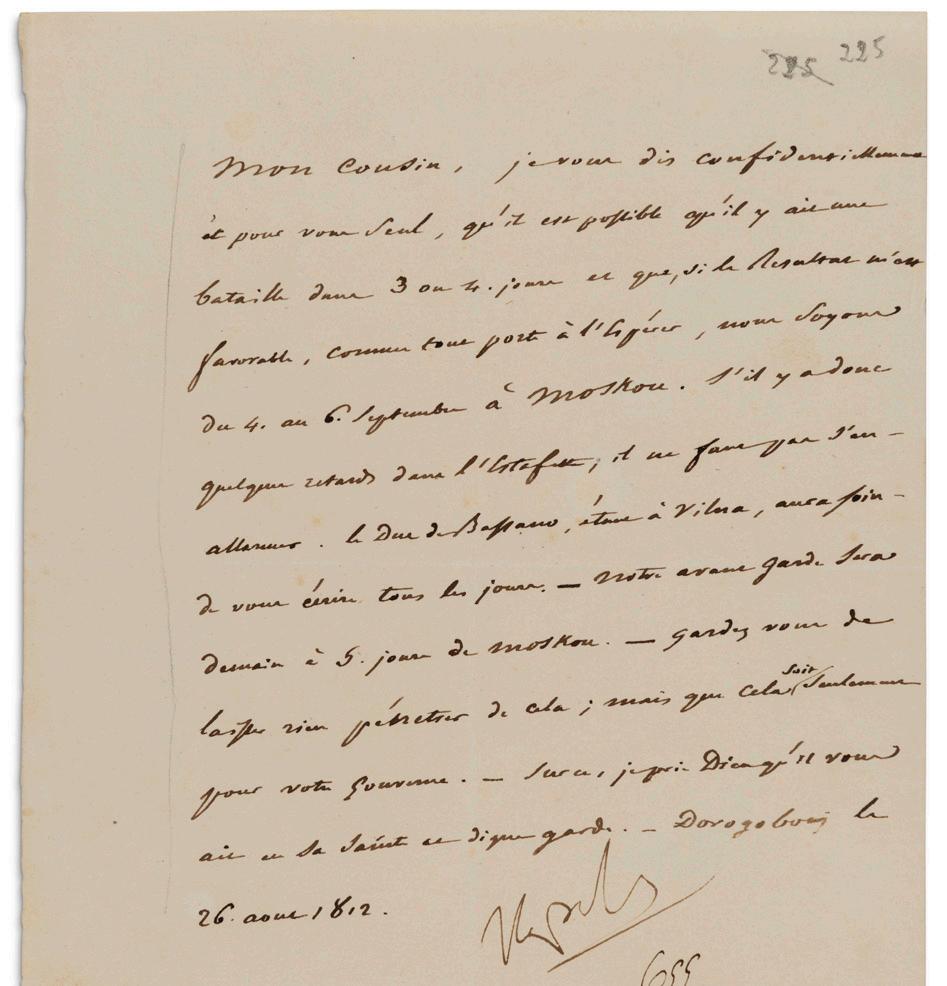 225 225
Mon Cousin, je vous dis confidentiellement
et pour vous seul, qu'il est possible qu'il y ait une
bataille dans 3 ou 4. jours et que, si le Résultat m'est
favorable, comme tout porte à l'espérer, nous soyons
du 4. au 6. Septembre à Moskou. S'il y a donc
quelques retards dans l'Estafette, il ne faut pas s'en-
allarmer. le Duc de Bassano, étant à Vilna, aura soin-
de vous écrire tous les jours. — Notre avant garde sera
demain à 5. jours de Moskou. — Gardez vous de
laisser rien pénétrer de cela ; mais que cela soit seulement
pour votre Gouverne. — Sur ce, je prie Dieu qu'il vous
ait en Sa Sainte et digne garde. — Dorogobouj le
26. aout 1812.
Napole